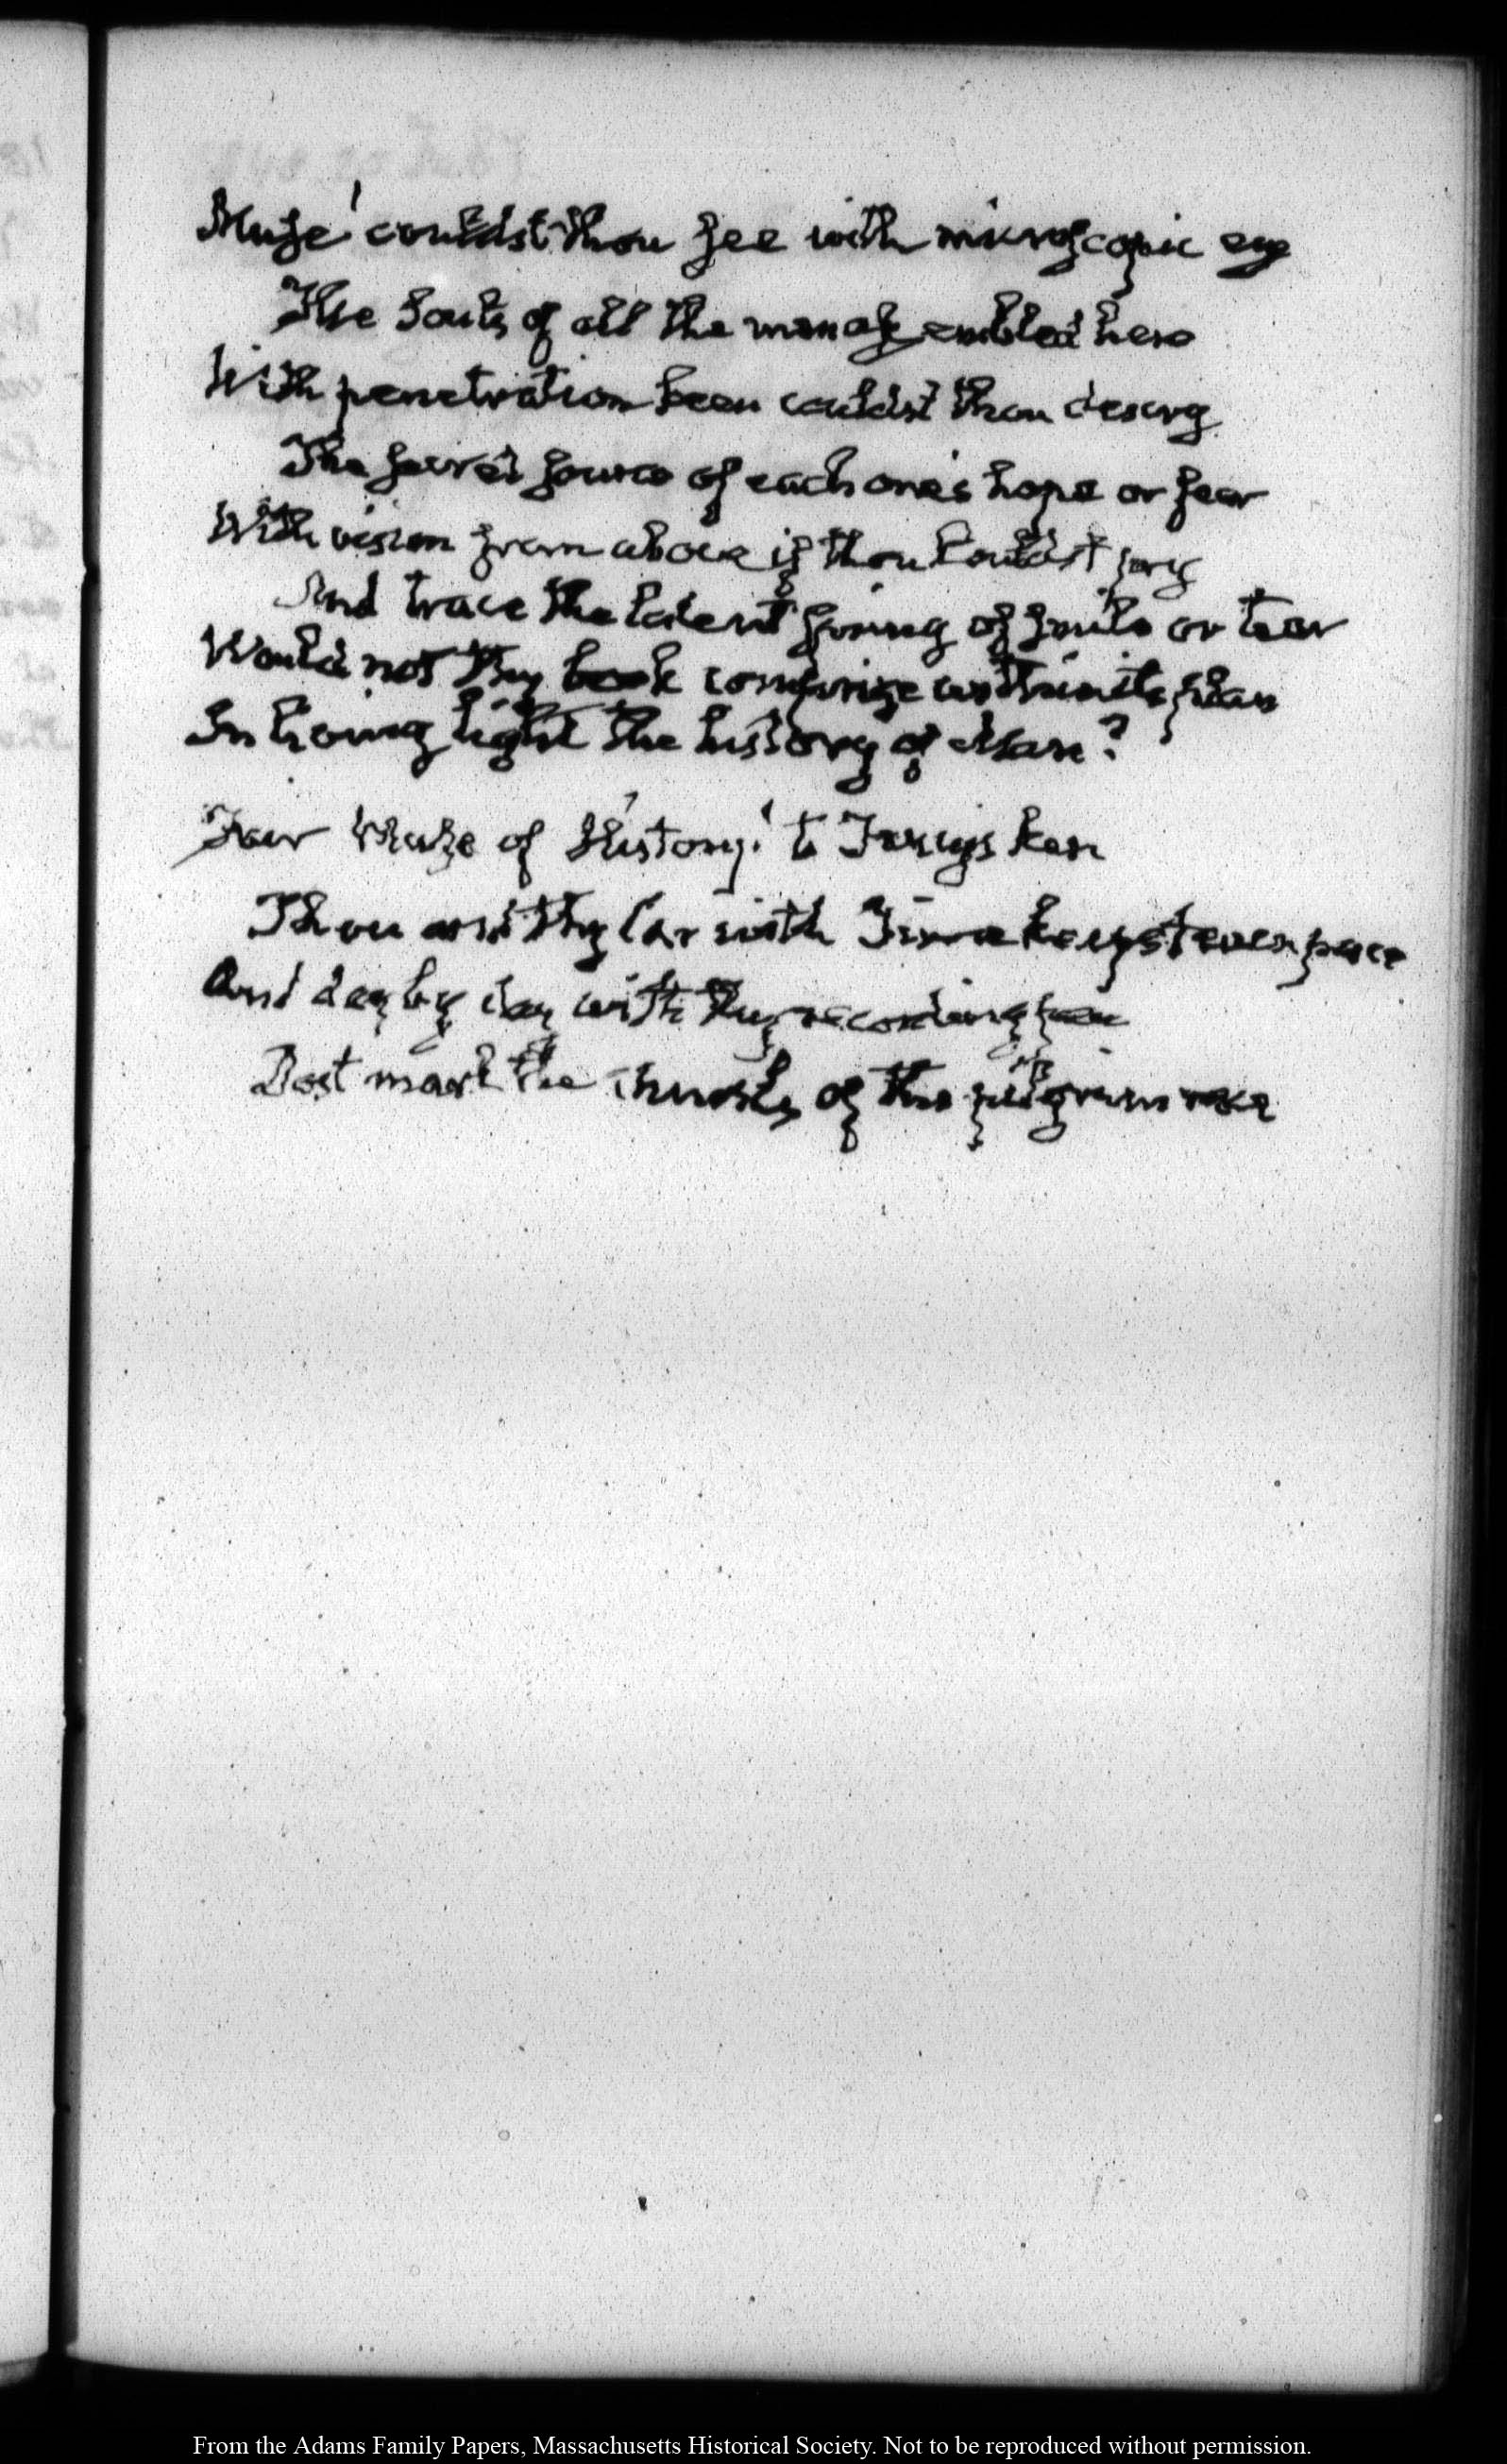 Muse! couldst thou see with microscopic eye
The Souls of all the men assembled here
With penetration keen couldst thou descry
The secret source of each one's hope or fear
With vision from above if thou couldst pry
And trace the latent spring of smile or tear
Would not thy book comprize within its plan
In living light the history of Man?
Fair Muse of History! to Fancy's ken
Thou and thy Car with Time keep'st even pace
And day by day with thy recording pen
Dost mark the of this pilgrim race
From the Adams Family Papers, Massachusetts Historical Society. Not to be reproduced without permission.